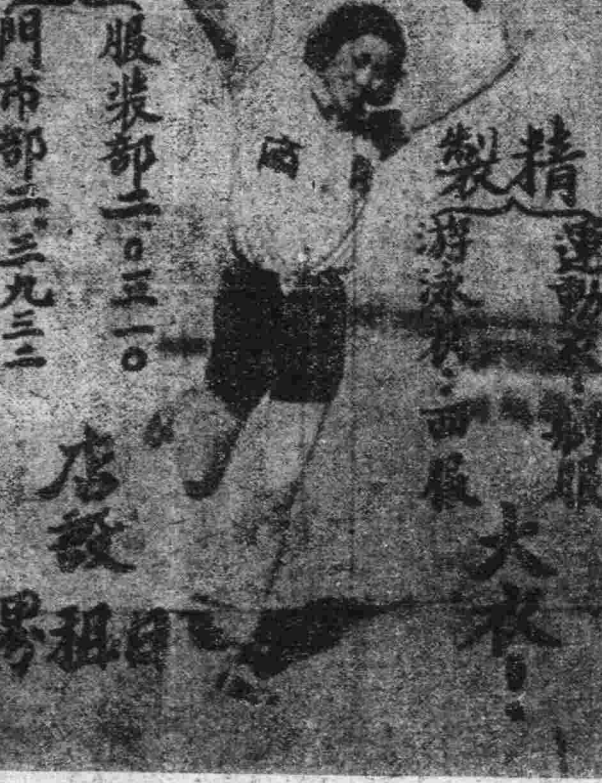 精製
運動衣·制服
游泳衣·西服
大衣…
服装部二·0三一0
門市部二·三九三二
店設
日租界